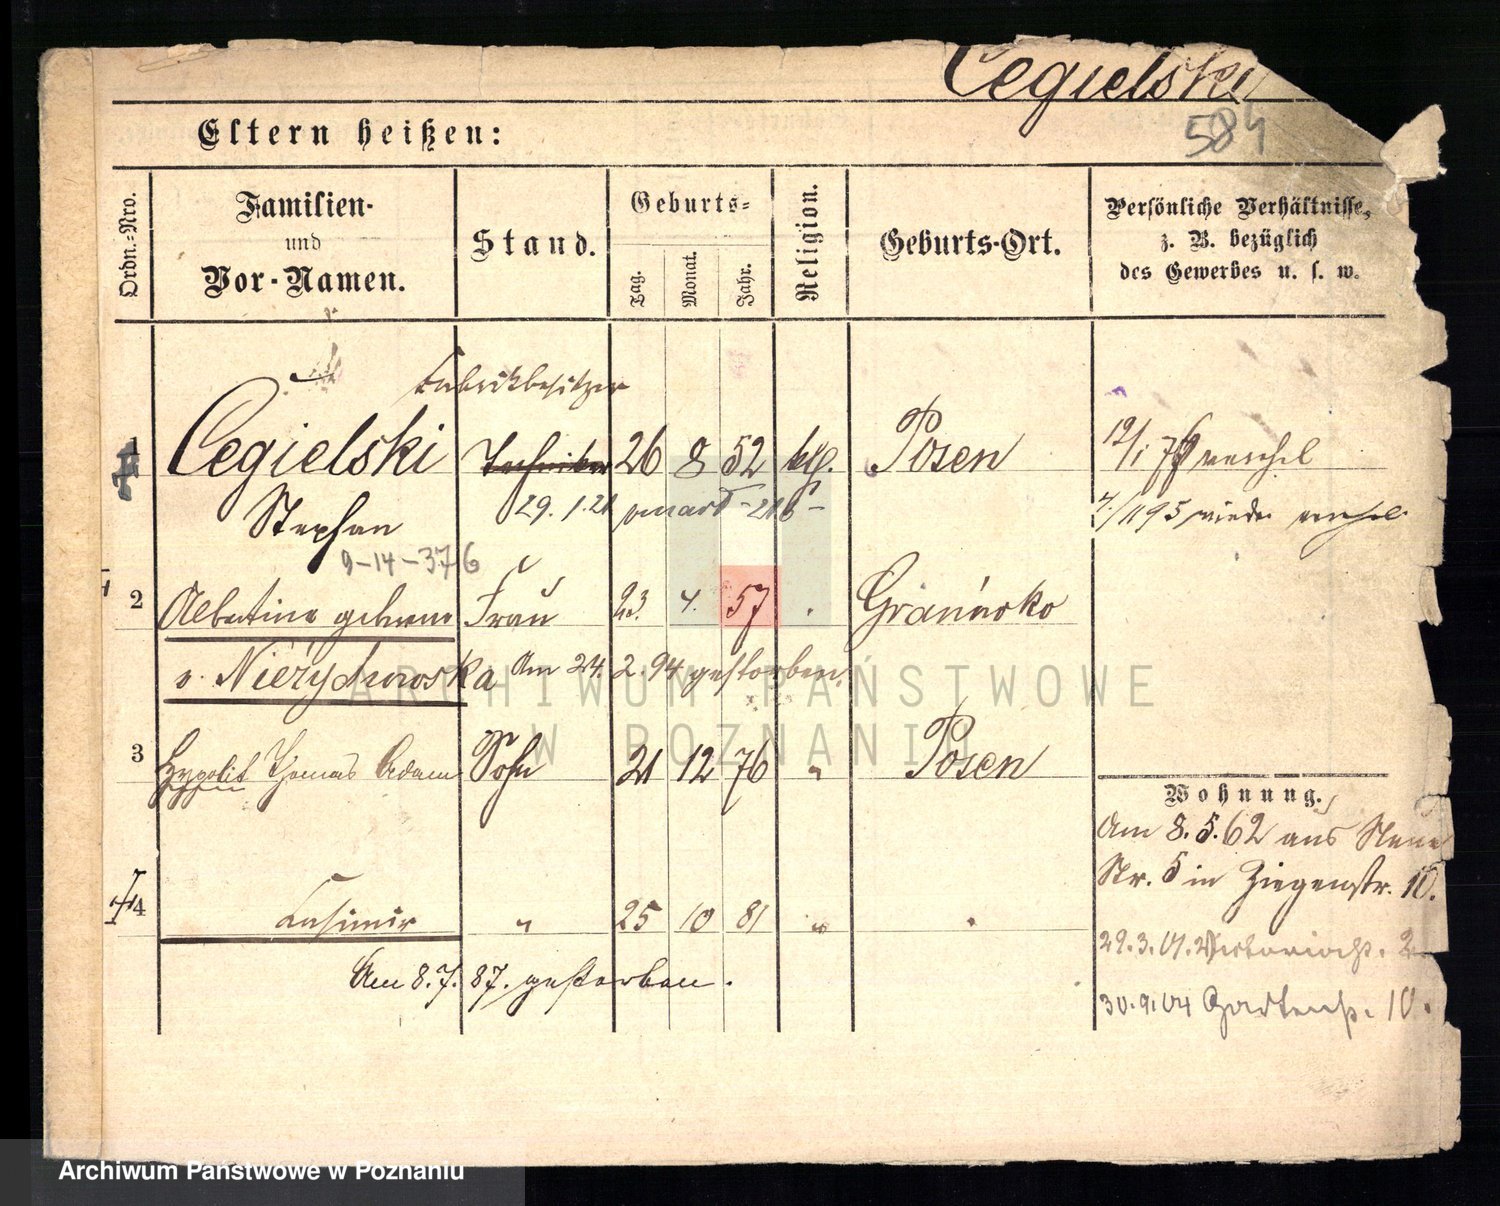 Cegielski
584
Eltern heißen:
Ordn.=Nro.
Familien-
und
Vor-Namen.
Stand.
Geburts=
Tag.
Monat.
Jahr.
Religion.
Geburts-Ort.
Persönliche Verhältnisse,
z. B. bezüglich
des Gewerbes u. s. w.
Fabrikbesitzer
1 Cegielski Techniker 26 8 52 ktl. Posen
Stephan 29. 1. 21
9-14-376
2 Albertine geborne Frau 23. 4. 57
v. Nieżychowska Am 24. 2. 94 gestorben.
3 Hypolit Thomas Adam Sohn 21 12 76 " Posen
4 Casimir " 25 10 81 " "
Am 8. 7. 87. gestorben.
Wohnung.
Am 8. 5. 62 aus Neue
Str. 5 in Ziegenstr. 10.
29. 3. 01. Victoriastr. 2
30. 9. 04 Gartenstr. 10.
ARCHIWUM PAŃSTWOWE
W POZNANIU
Archiwum Państwowe w Poznaniu